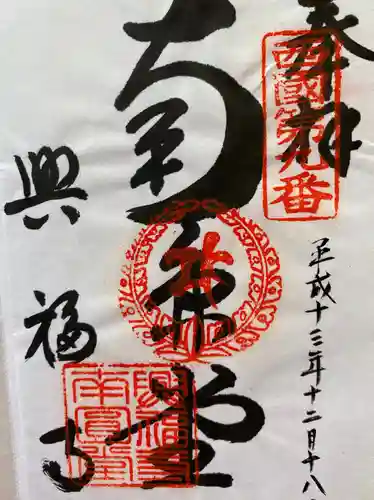 奉拝
西國第九番
平成十三年十二月十八
南円堂
興福寺
興福寺
南圓堂